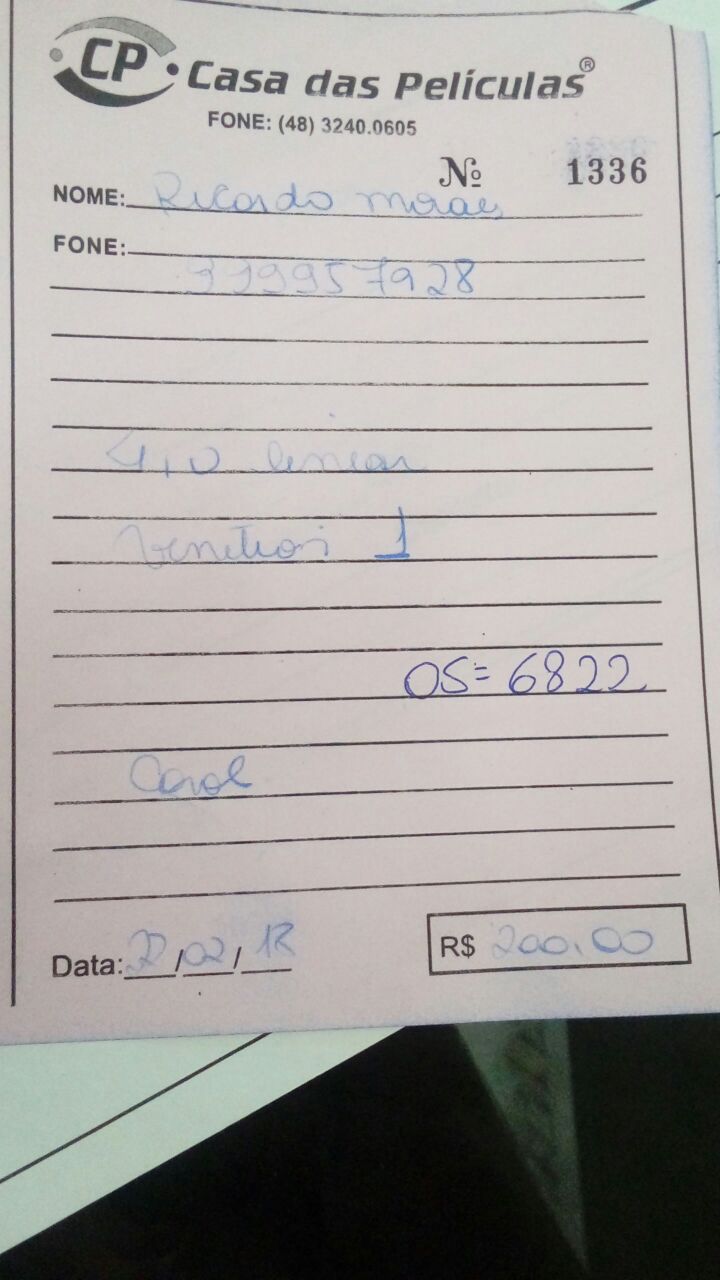 CP Casa das Películas®
FONE: (48) 3240.0605
Nº 1336
NOME: Ricardo Moraes
FONE:
999957928
4,0 linear
1
OS= 6822
Carol
Data: /02/
R$ 200,00